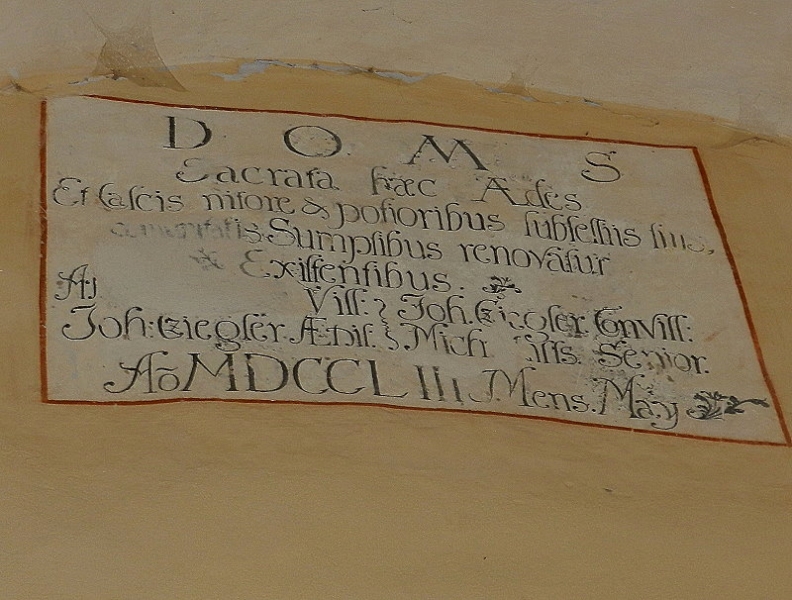 D. O. M. S
Sacrata hæc Ædes
Et Calcis nitore & potioribus subselliis suis,
Sumptibus renovatur
Existentibus.
Vill: Joh. Ziegler. Convill:
Joh: Ziegler. Ædil: Mich Senior.
Aõ MDCCLIII Mens. Maÿ